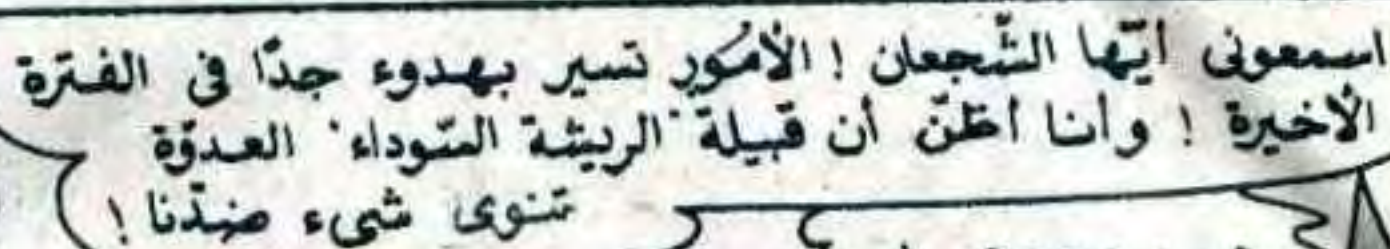 اسمعونى أيّها الشّجعان ! الأمُور تسير بهدوء جدّا فى الفترة
الأخيرة ! وأنا أظنّ أن قبيلة "الريشة السّوداء" العدوّة
تنوى شىء ضدّنا !